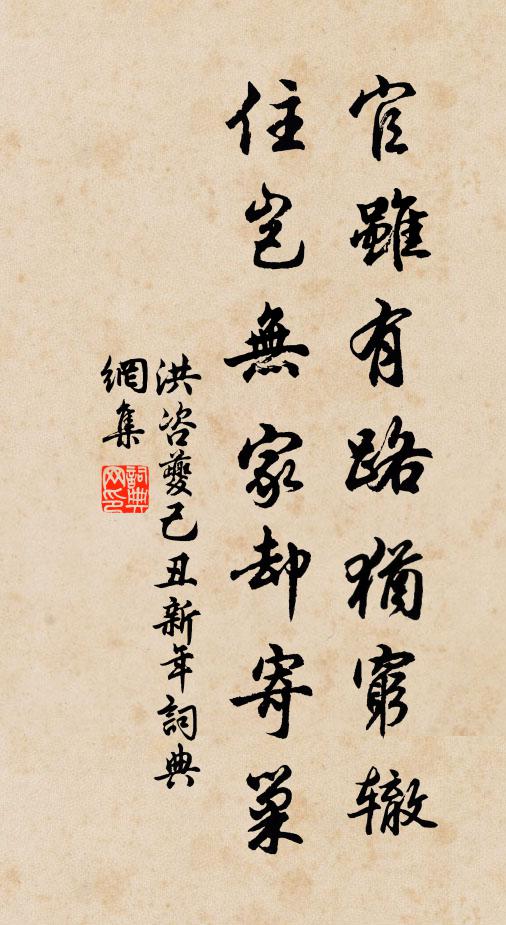 官雖有路猶窮辙
住豈無家却寄巢
洪咨夔己丑新年詞典
網集
詞典
网印